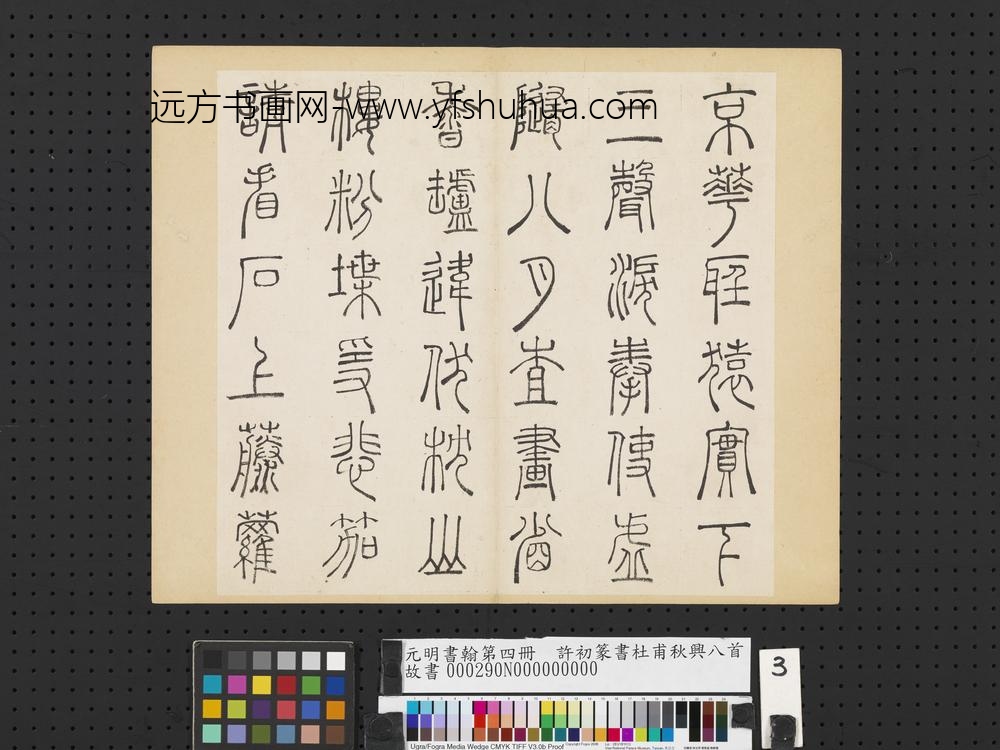 远方书画网-www.yfshuhua.com
京華聽猨實下
三聲淚奉使虛
隨八月查畫省
香爐違伏枕山
樓粉堞㝃悲笳
請看石上藤蘿
元明書翰第四冊 許初篆書杜甫秋興八首
故書000290N000000000
3
Ugra/Fogra Media Wedge CMYK TIFF V3.0b Proof